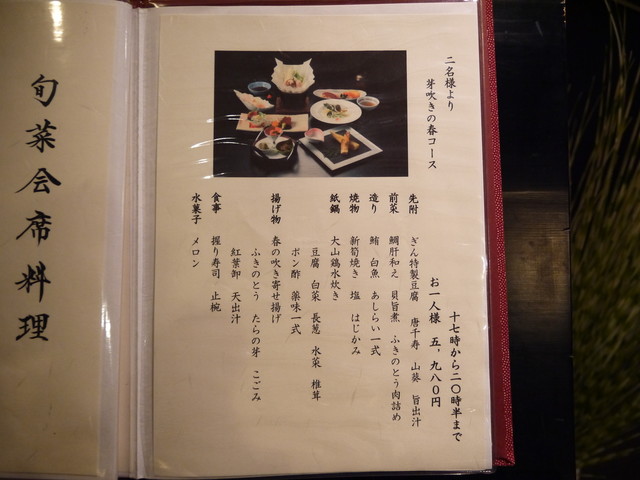 旬菜会席料理
二名様より
芽吹きの春コース
十七時から二〇時半まで
お一人様 五,九八〇円
先附 ぎん特製豆腐 唐千寿 山葵 旨出汁
前菜 鯛肝和え 貝旨煮 ふきのとう肉詰め
造り 鮪 白魚 あしらい一式
焼物 新筍焼き 塩 はじかみ
紙鍋 大山鶏水炊き
豆腐 白菜 長葱 水菜 椎茸
ポン酢 薬味一式
揚げ物 春の吹き寄せ揚げ
ふきのとう たらの芽 こごみ
紅葉卸 天出汁
食事 握り寿司 止椀
水菓子 メロン